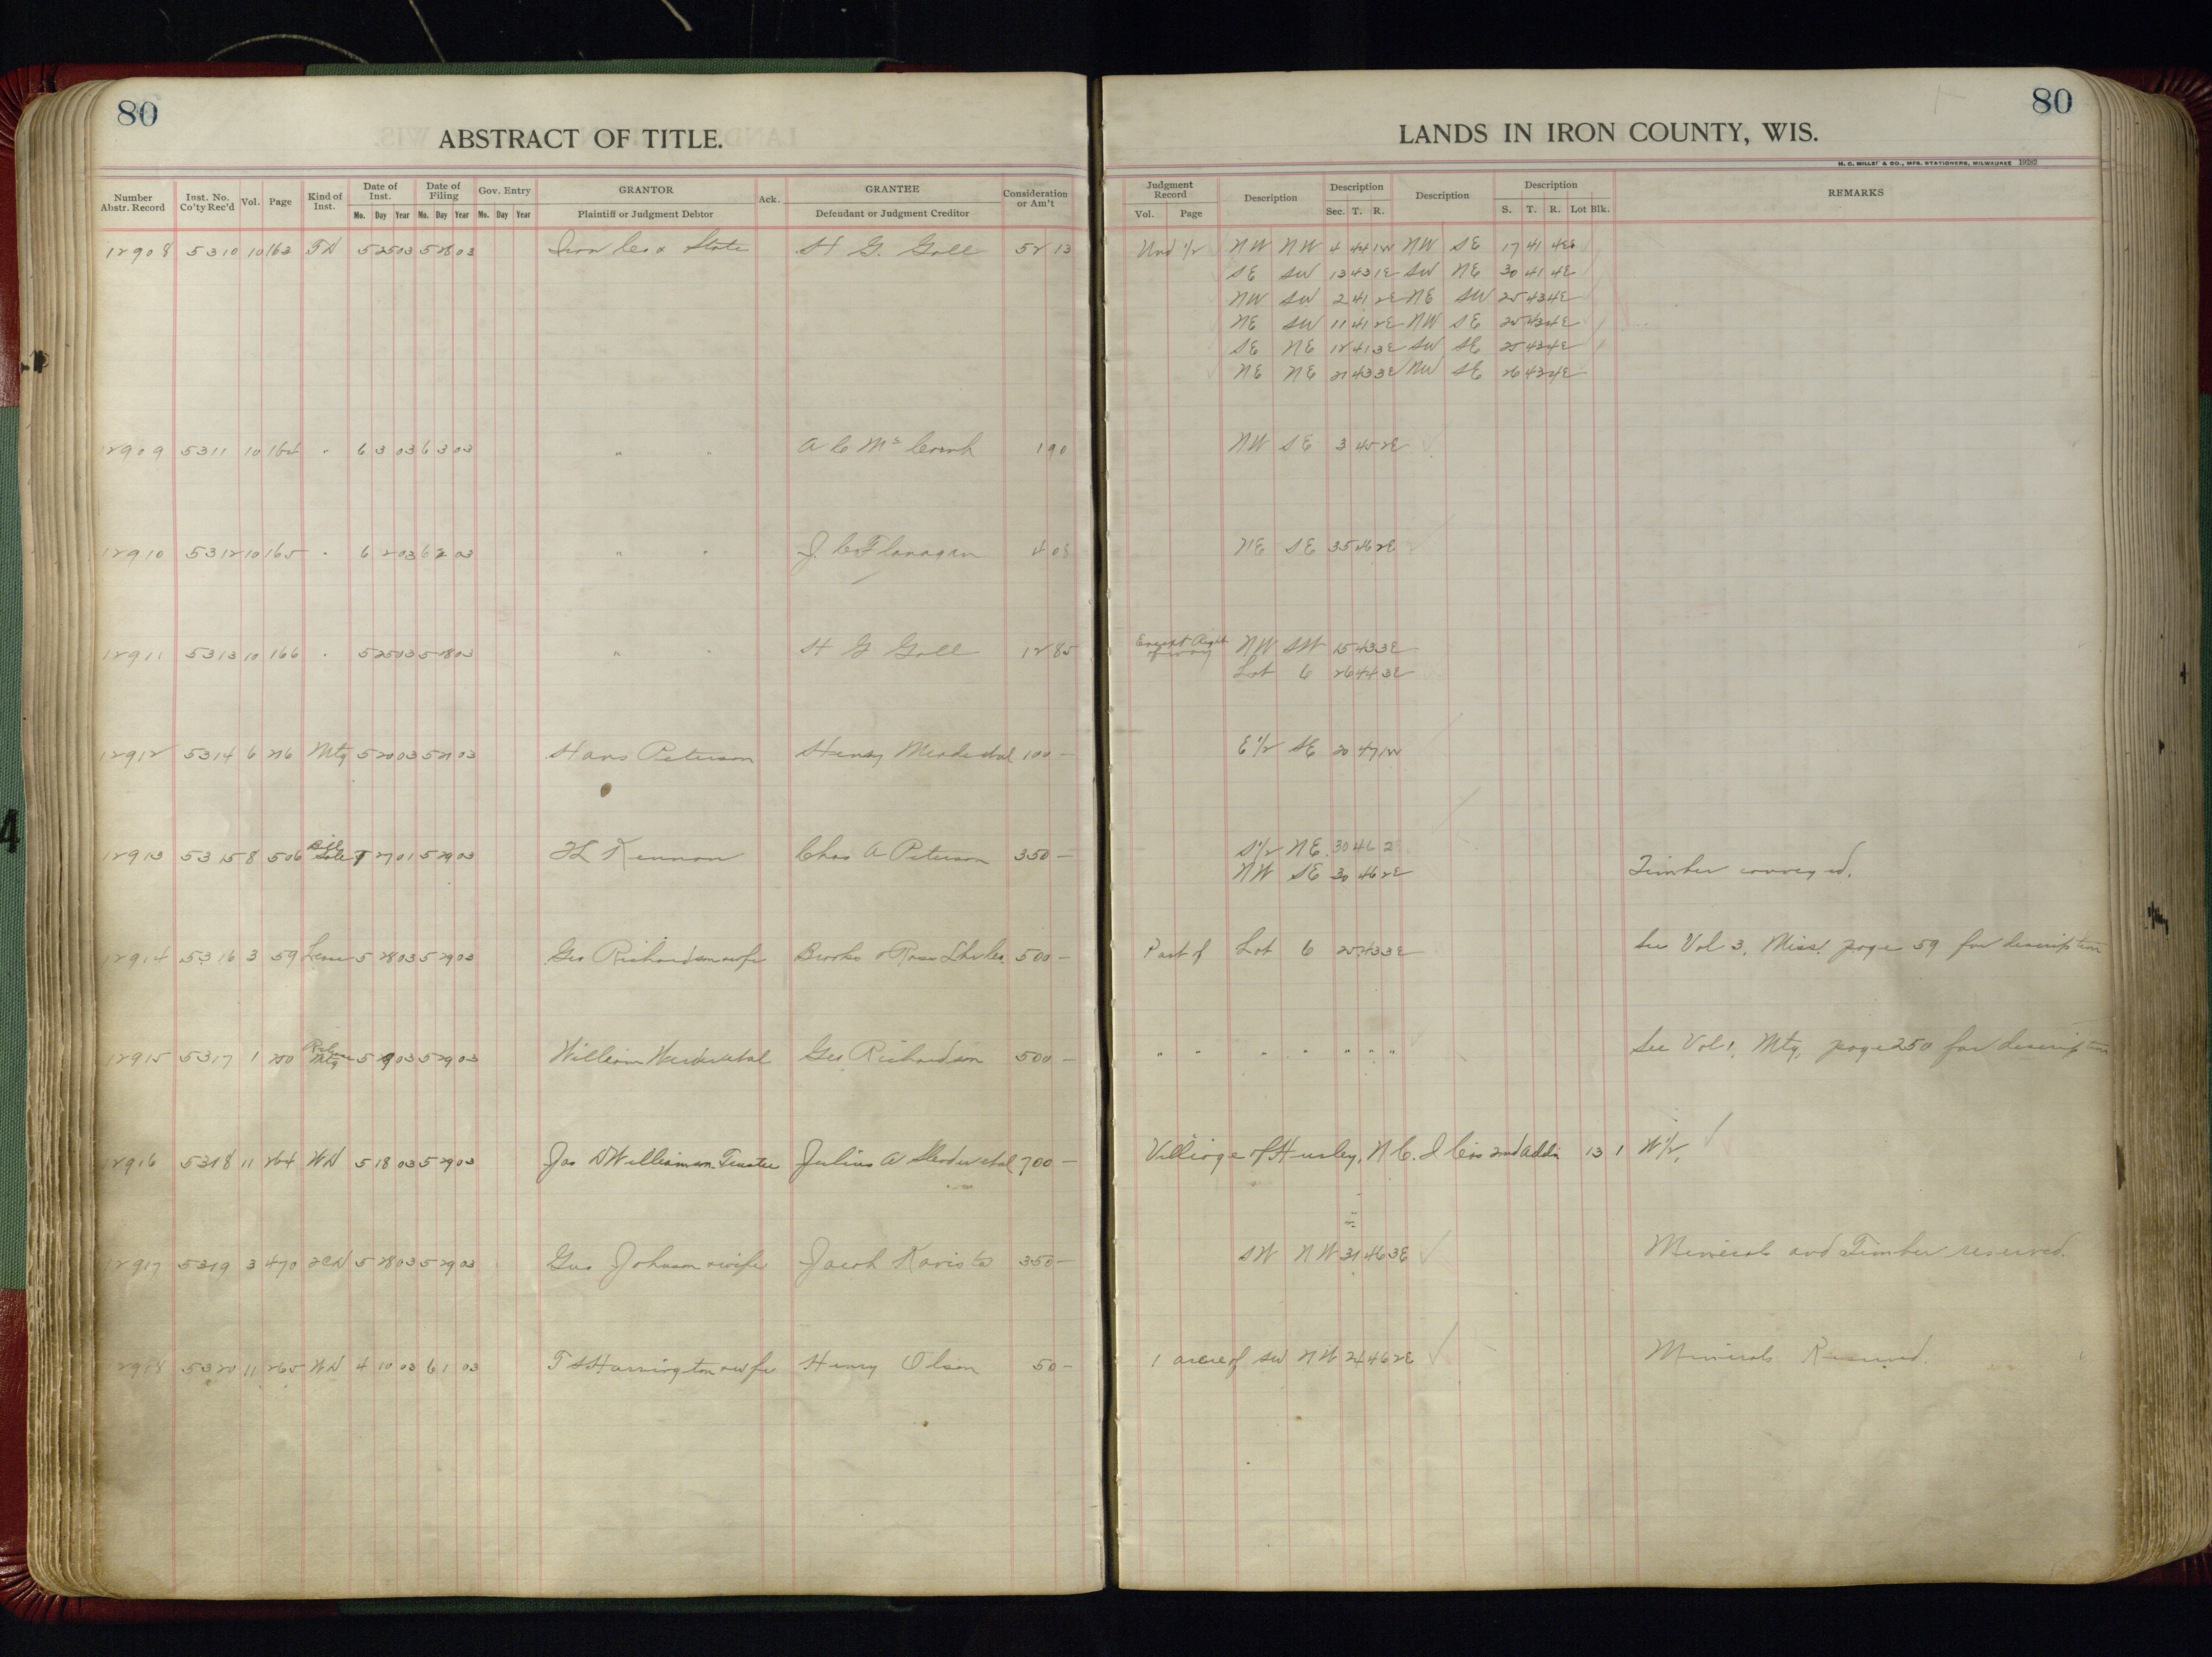 80
ABSTRACT OF TITLE.
Number Abstr. Record Inst. No. Co'ty Rec'd Vol. Page Kind of Inst. Date of Inst. Mo. Day Year Date of Filing Mo. Day Year Gov. Entry Mo. Day Year GRANTOR Plaintiff or Judgment Debtor Ack. GRANTEE Defendant or Judgment Creditor Consideration or Am't
12908 5310 10 163 TD 5 25 03 5 28 03 Iron Co & State H G. Goll 52 13
12909 5311 10 164 " 6 3 03 6 3 03 " " A C 1 90
12910 5312 10 165 " 6 2 03 6 2 03 " " J. C Flanagan 4 08
12911 5313 10 166 " 5 25 03 5 28 03 " " H G Goll 12 85
12912 5314 6 216 Mtg 5 20 03 5 21 03 Hans Peterson Henry 100 -
12913 5315 8 506 Bill Sale 27 01 5 29 03 Chas A Peterson 350 -
12914 5316 3 59 Lease 5 28 03 5 29 03 Geo Richardson & wife Brooks & Ross Lbr Co. 500 -
12915 5317 1 250 Release Mtg 5 29 03 5 29 03 William Geo Richardson 500 -
12916 5318 11 264 WD 5 18 03 5 29 03 Jas D Williamson Trustee Julius A 700 -
12917 5319 3 470 5 28 03 5 29 03 Gus Johnson & wife Jacob 350 -
12918 5320 11 265 WD 4 10 03 6 1 03 T S Harrington & wife Henry Olson 50 -
80
LANDS IN IRON COUNTY, WIS.
H. C. MILLER & CO., MFG. STATIONERS, MILWAUKEE 19282
Judgment Record Vol. Page Description Description Sec. T. R. Description Description S. T. R. Lot Blk. REMARKS
Und 1/2 NW NW 4 44 1W NW SE 17 41 4E
SE SW 13 43 1E SW NE 30 41 4E
NW SW 2 41 2E NE SW 25 43 4E
NE SW 11 41 2E NW SE 25 43 4E
SE NE 12 41 3E SW SE 25 43 4E
NE NE 21 43 3E NW SE 26 43 4E
NW SE 3 45 2E
NE SE 35 46 2E
Except Right of way NW SW 15 43 3E
Lot 6 26 44 3E
E 1/2 SE 20 47 1W
S 1/2 NE 30 46 2
NW SE 30 46 2E Timber conveyed.
Part of Lot 6 25 43 3E See Vol 3. Miss. page 59 for description
" " " " " " " See Vol 1. Mtg. page 250 for description
Village of Hurley, N C. I Co's 2nd Addn 13 1 W 1/2.
SW NW 31 46 3E Minerals and Timber reserved.
1 acre of SW NW 24 46 2E Minerals Reserved.